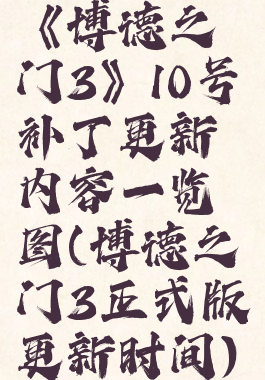 《博德之
门3》10号
补丁更新
内容一览
图(博德之
门3正式版
更新时间)